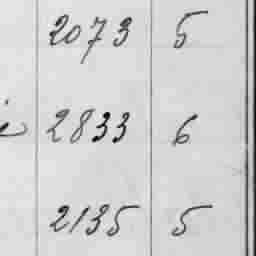 2073 5
2833 6
2135 5